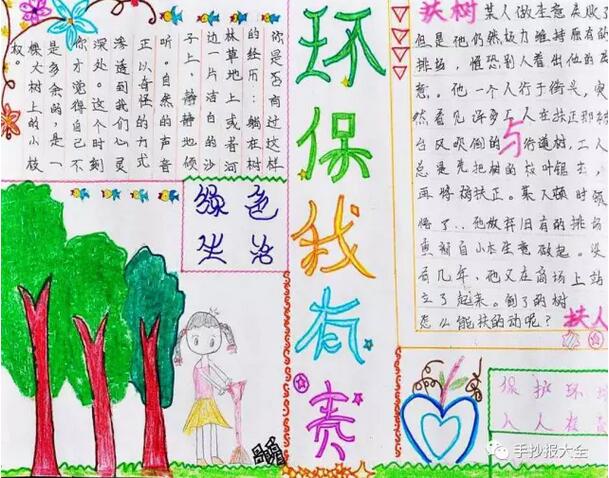 环保我有责
你是否有过这样
的经历，躺在树
林草地上或者河
边一片洁白的沙
子上，静静地倾
听。自然的声音
正以奇怪的方式
渗透到我们心灵
深处。这个时刻
你才觉得自己不
是多余的，是一
棵大树上的小枝
杈。
绿色
生活
扶树
与
扶人
某人做生意失败了
但是他仍然极力维持原有的
排场，惟恐别人看出他的失
意。他一个人行于街头，突
然看见许多工人在扶正那被
台风吹倒的行道树，工人
总是先把树的枝叶锯去，
再将树扶正。某人顿时领
悟了..他放弃旧有的排场
重新自小本生意做起。没
有几年，他又在商场上站
立了起来。倒了的树
怎么能扶的动呢？
保护环
人人
手抄报大全